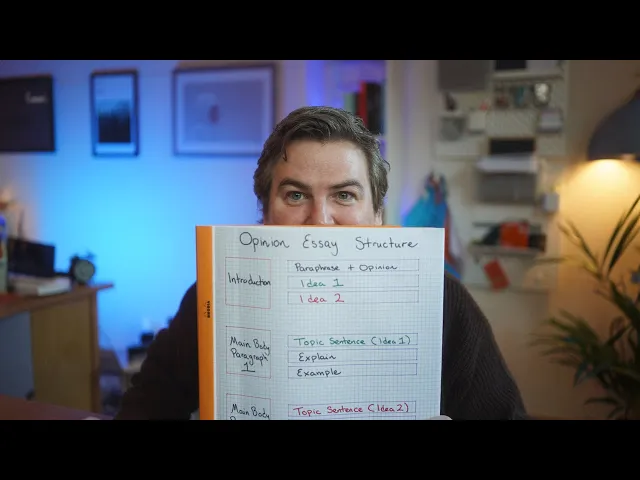 Opinion Essay Structure
Introduction
Paraphrase + Opinion
Idea 1
Idea 2
Main Body
Paragraph
1
Topic Sentence (Idea 1)
Explain
Example
Main Body
Topic Sentence (Idea 2)